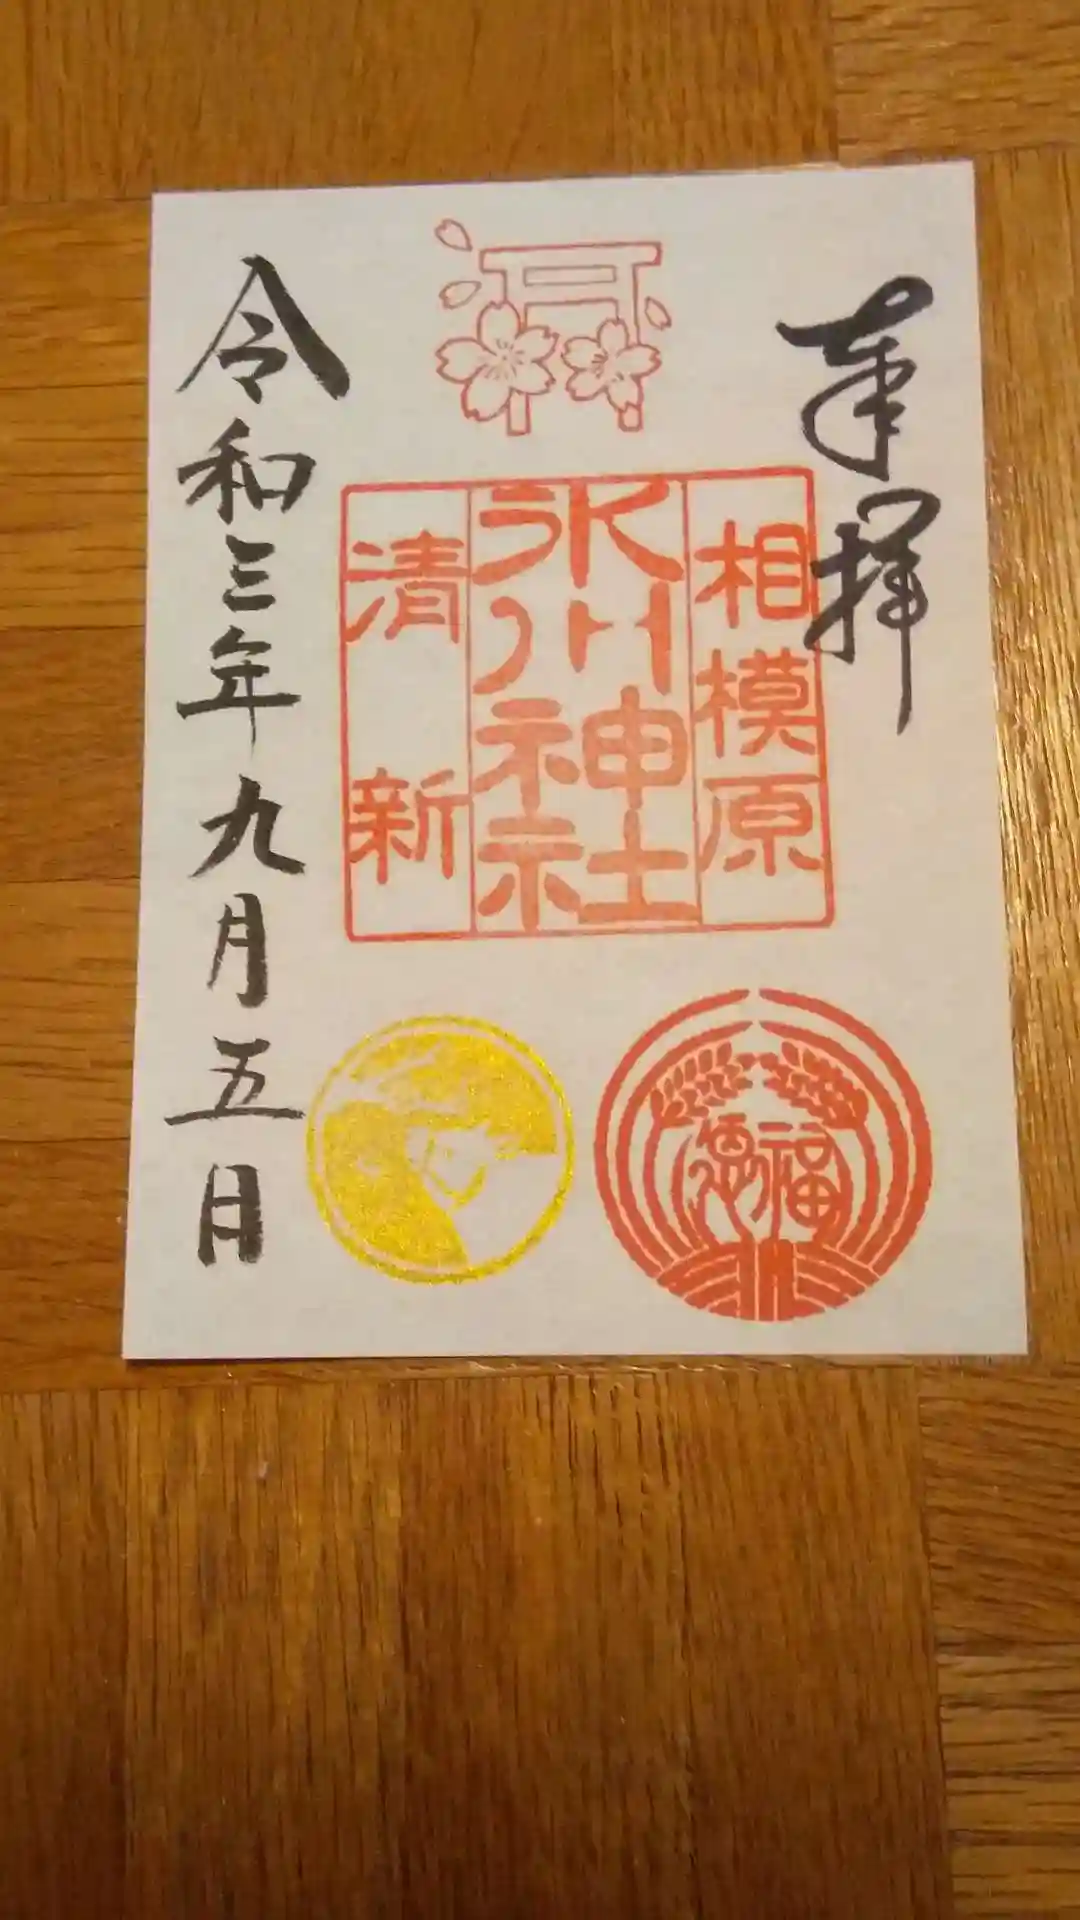 奉拝
相模原
氷川神社
清新
福徳
令和三年九月五日